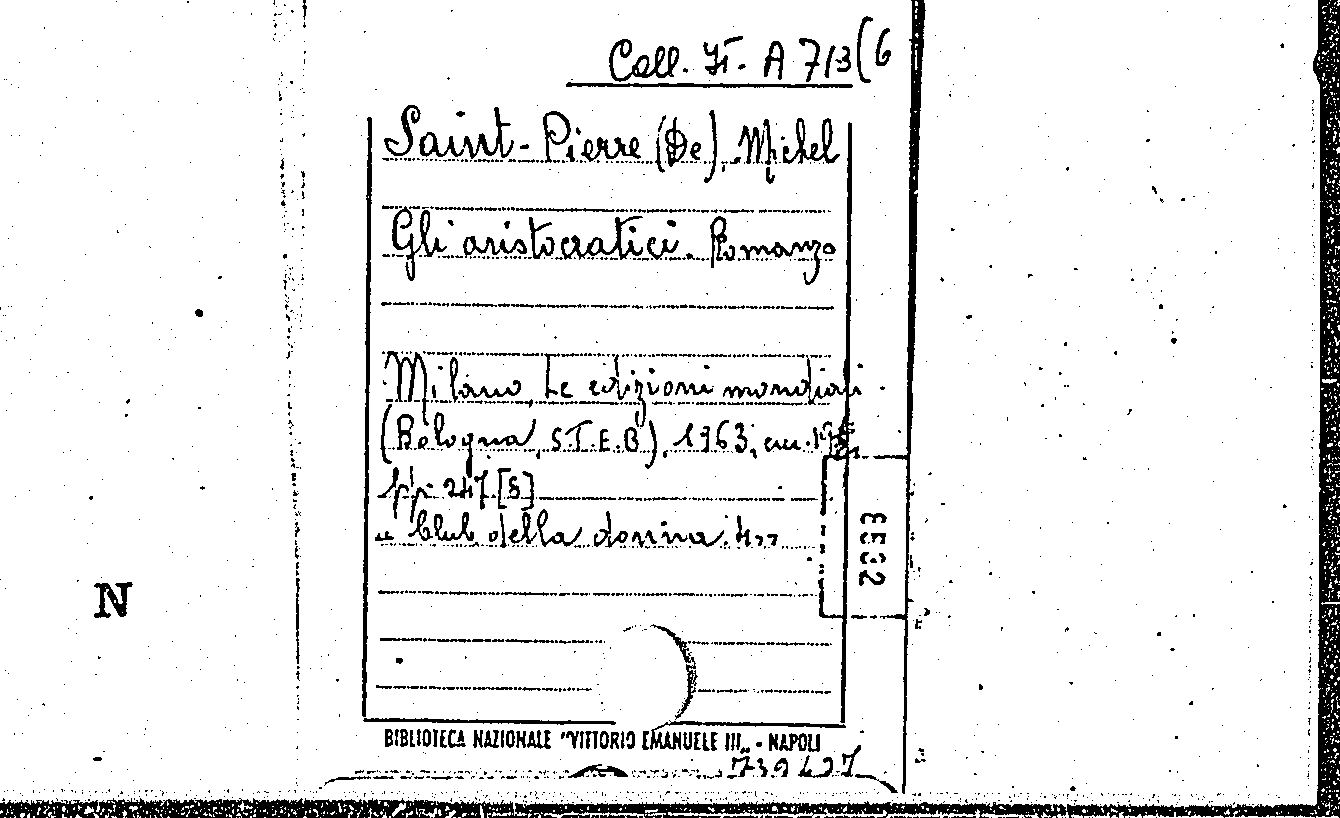 Coll. It. A 713(6
Saint-Pierre (De), Michel
Gli aristocratici. Romanzo
Milano, Le edizioni mondiali
(Bologna, S.T.E.B), 1963, cm.
pp. 247 [8]
" Club della donna.
N
BIBLIOTECA NAZIONALE "VITTORIO EMANUELE III„ - NAPOLI